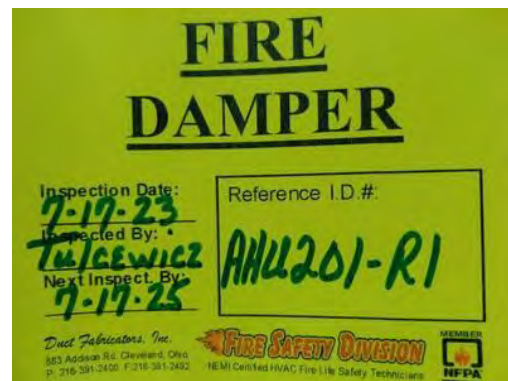 FIRE
DAMPER
Inspection Date:
7-17-23
Inspected By:
Tulcewicz
Next Inspect. By:
7-17-25
Reference I.D.#:
AHU201-R1
Duct Fabricators, Inc.
883 Addison Rd. Cleveland, Ohio
P. 216-391-2400 F. 216-391-2492
FIRE SAFETY DIVISION
NEMI Certified HVAC Fire Life Safety Technicians
MEMBER
NFPA